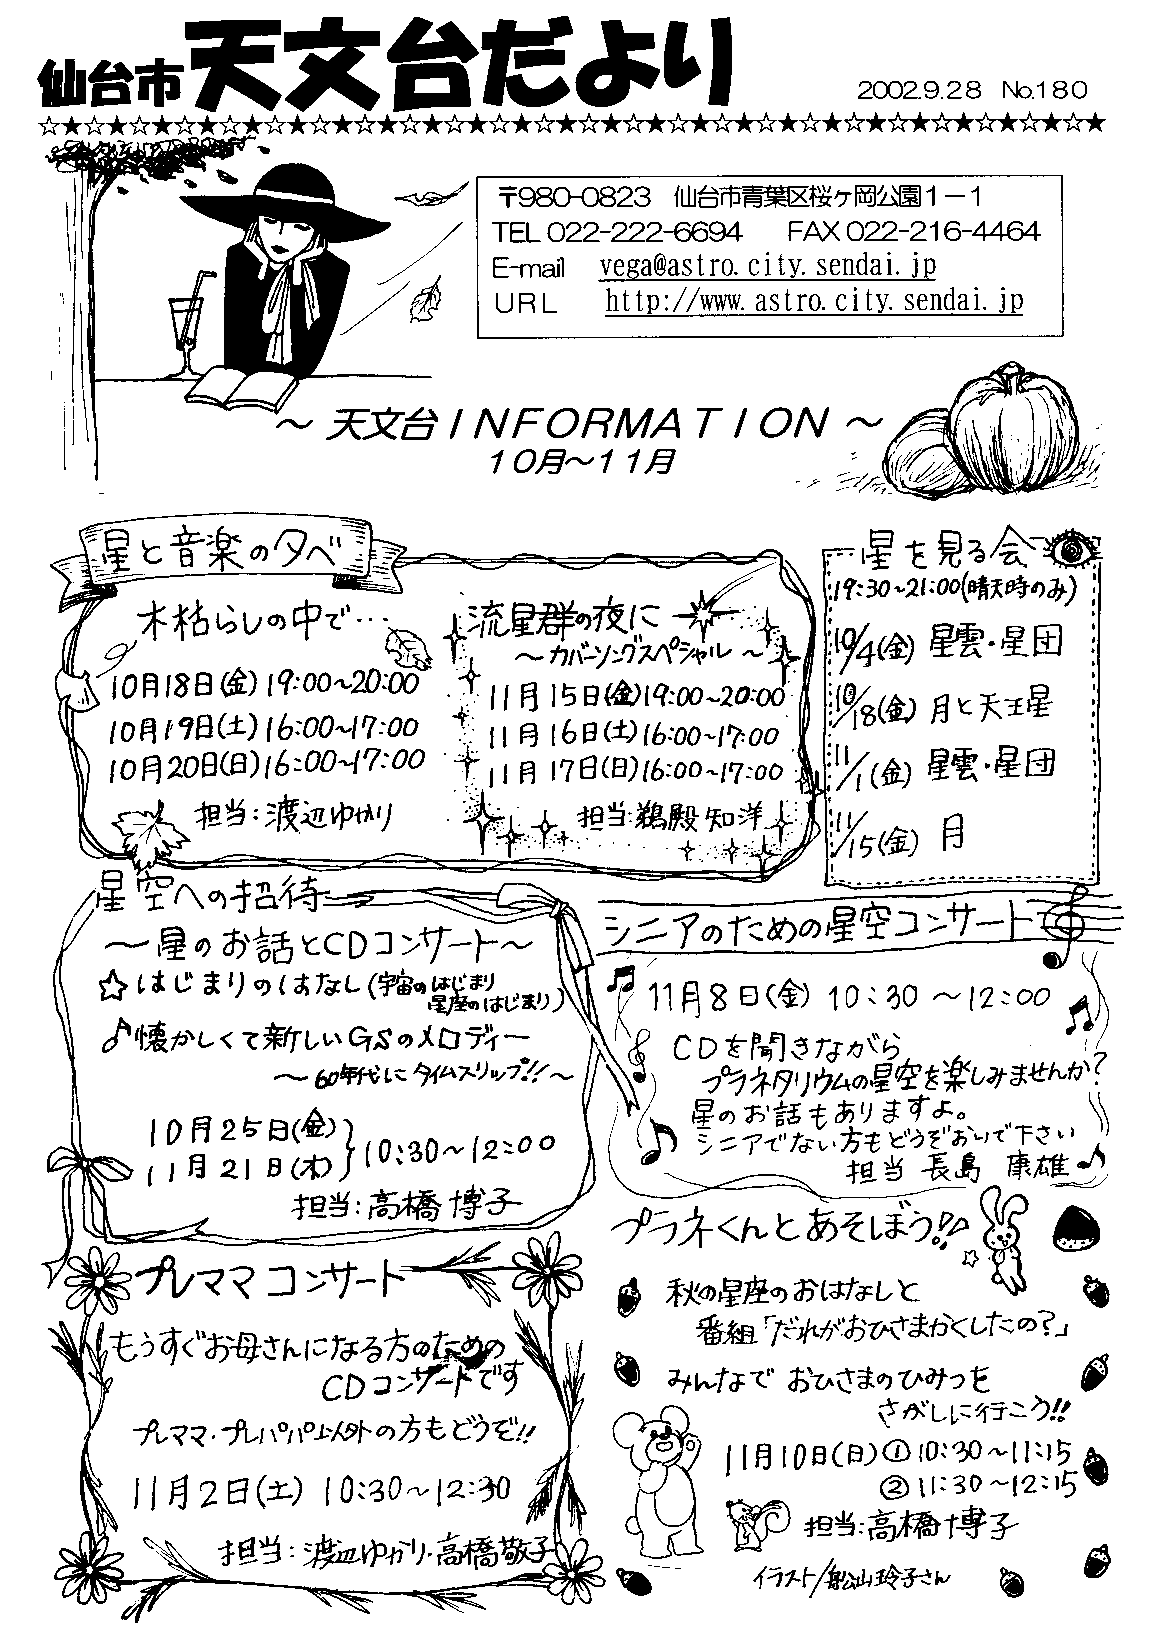 仙台市 天文台だより
2002.9.28 No.180
☆★☆★☆★☆★☆★☆★☆★☆★☆★☆★☆★☆★☆★☆★☆★☆★☆★☆★☆★☆★☆★☆★☆★☆★
〒980-0823 仙台市青葉区桜ヶ岡公園1-1
TEL 022-222-6694 FAX 022-216-4464
E-mail vega@astro.city.sendai.jp
URL http://www.astro.city.sendai.jp
～ 天文台INFORMATION ～
10月～11月
星と音楽の夕べ
木枯らしの中で…
10月18日(金) 19:00~20:00
10月19日(土) 16:00~17:00
10月20日(日) 16:00~17:00
担当:渡辺ゆかり
流星群の夜に
～カバーソングスペシャル～
11月15日(金) 19:00~20:00
11月16日(土) 16:00~17:00
11月17日(日) 16:00~17:00
担当:鵜殿知洋
星を見る会
19:30~21:00(晴天時のみ)
10/4(金) 星雲・星団
10/18(金) 月と天王星
11/1(金) 星雲・星団
11/15(金) 月
星空への招待
～星のお話とCDコンサート～
☆はじまりのはなし(宇宙のはじまり
星座のはじまり)
♪懐かしくて新しいGSのメロディー
～60年代にタイムスリップ!!～
10月25日(金)
11月21日(木)}10:30~12:00
担当:高橋博子
シニアのための星空コンサート
11月8日(金) 10:30~12:00
CDを聞きながら
プラネタリウムの星空を楽しみませんか?
星のお話もありますよ。
シニアでない方もどうぞおいで下さい
担当 長島 康雄
プレママコンサート
もうすぐお母さんになる方のための
CDコンサートです
プレママ・プレパパ以外の方もどうぞ!!
11月2日(土) 10:30~12:30
担当:渡辺ゆかり・高橋敬子
プラネくんとあそぼう!!
秋の星座のおはなしと
番組「だれがおひさまかくしたの?」
みんなで おひさまのひみつを
さがしに行こう!!
11月10日(日) ①10:30~11:15
②11:30~12:15
担当:高橋博子
イラスト/船山玲子さん